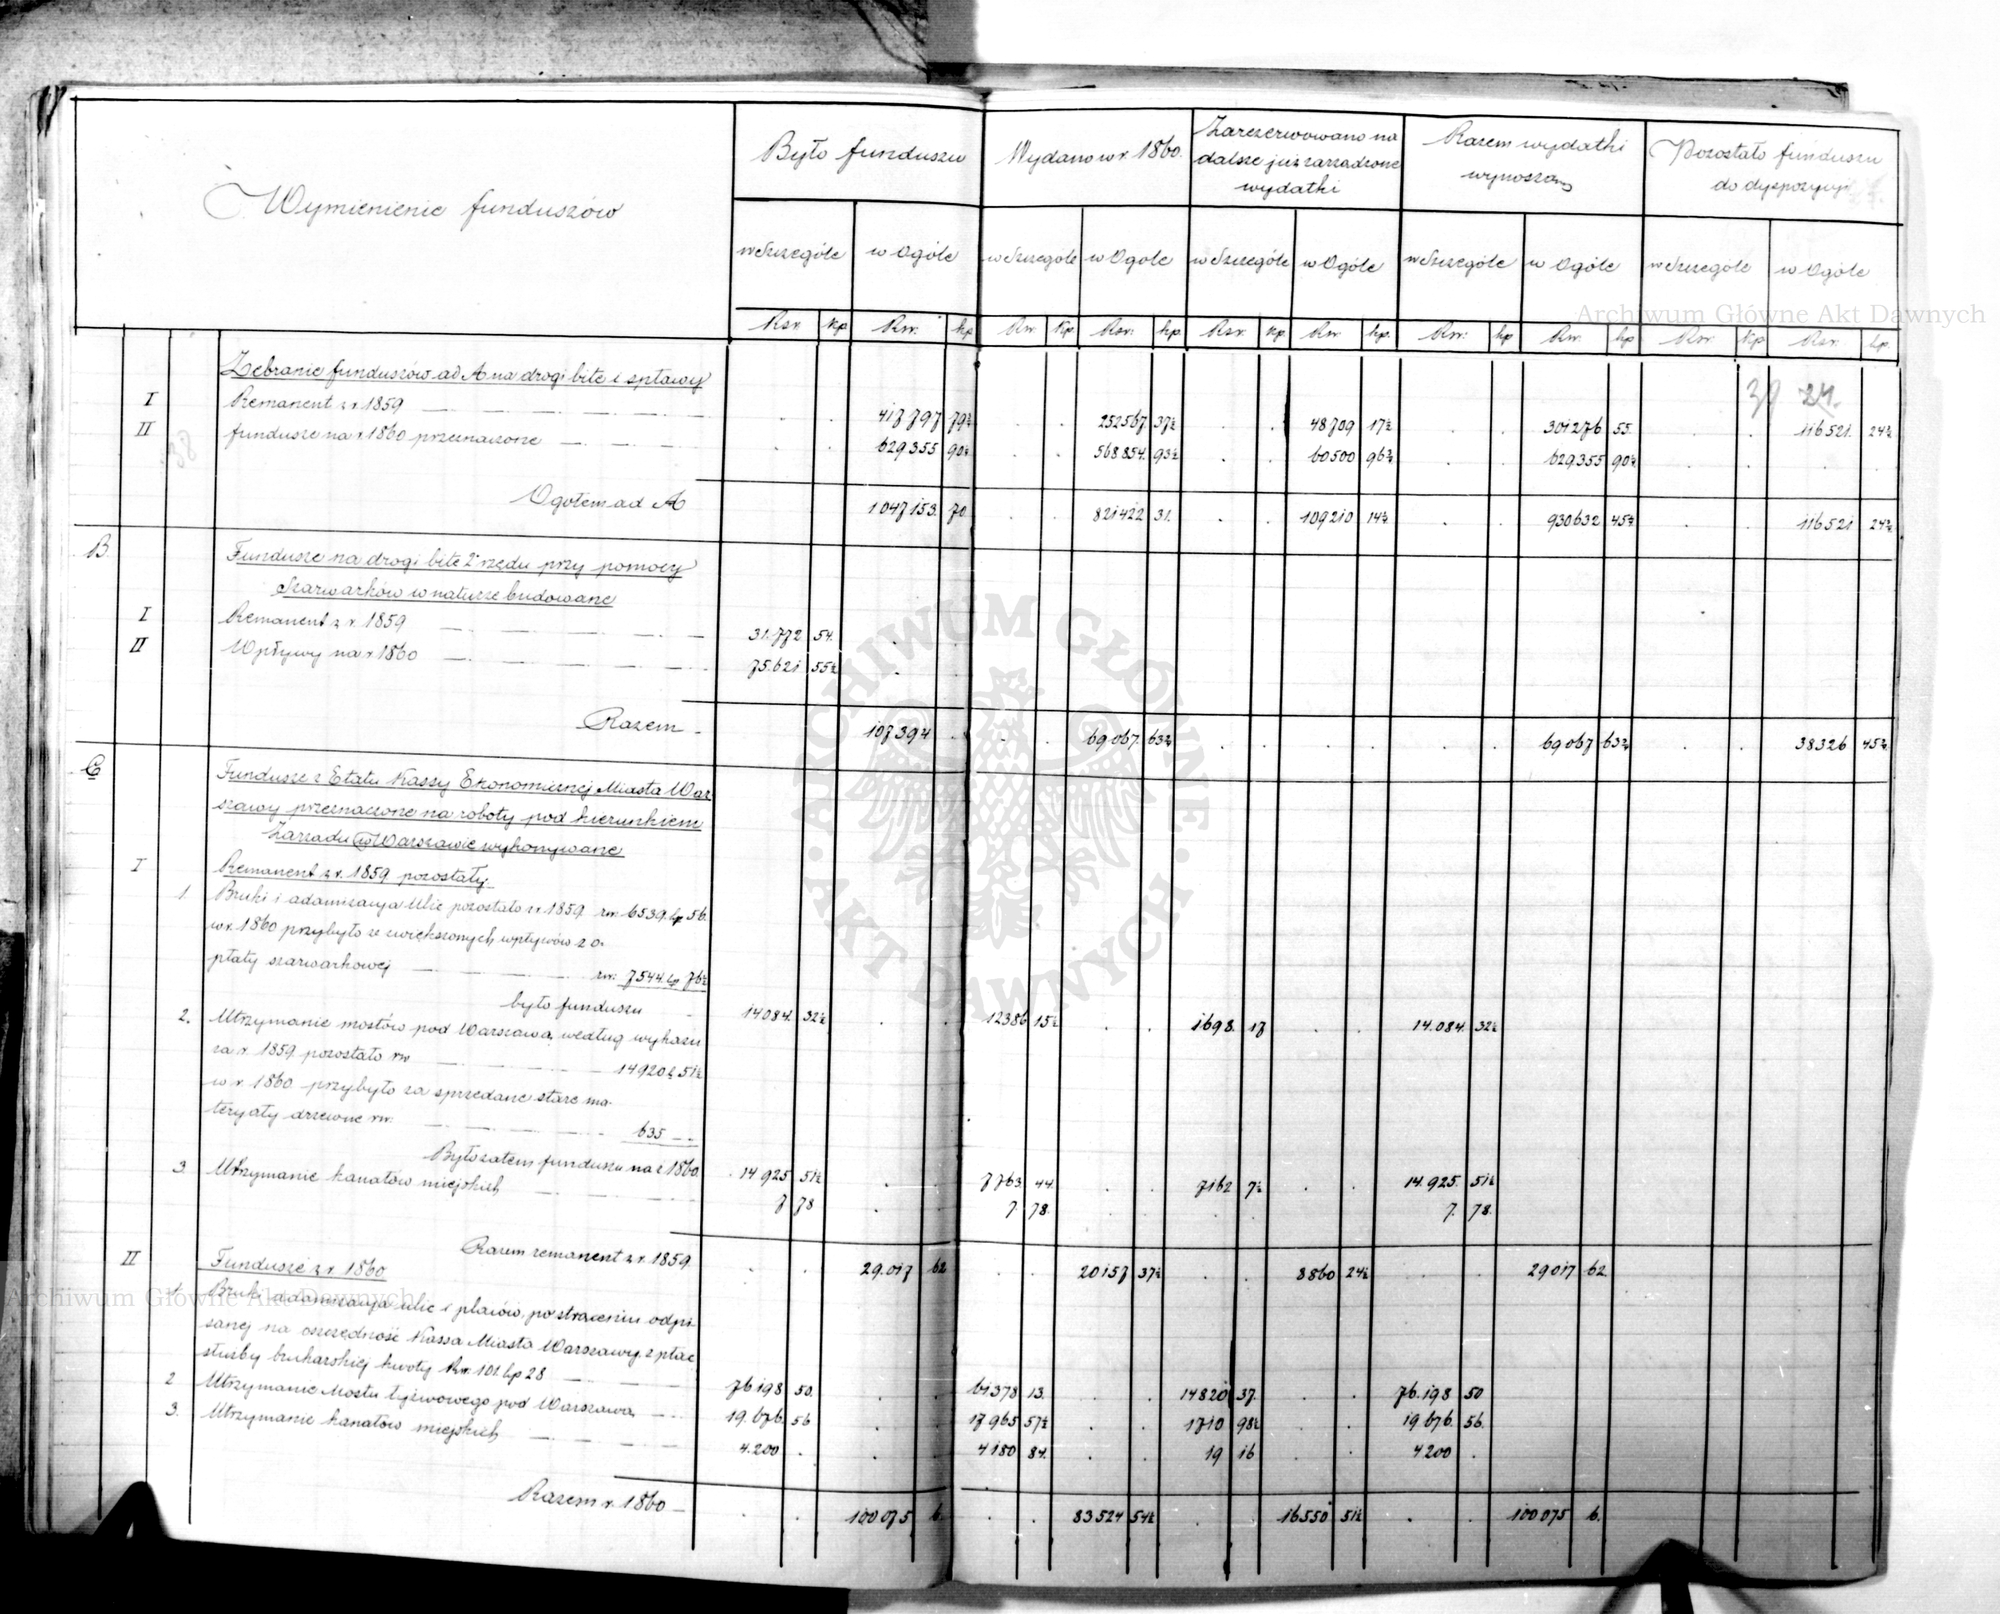 Wymienienie funduszów
Było funduszu
Wydano w r. 1860.
Zarezerwowano na
dalsze już zarządzone
wydatki
Razem wydatki
wynoszą
Pozostało funduszu
do dyspozycyi
w Szczególe w Ogóle w Szczególe w Ogóle w Szczególe w Ogóle w Szczególe w Ogóle w Szczególe w Ogóle
Rsr. Kp Rsr. kp Rsr. Kp Rsr. kp. Rsr. kp. Rsr. kp. Rsr. kp Rsr. kp Rsr. Kp Rsr. kp.
39 24.
38
Zebranie funduszów ad A na drogi bite i spławy
I Remanent z r. 1859 417797 79½ 252567 37½ 48709 17½ 301276 55. 116521. 24½
II fundusze na r. 1860 przeznaczone 629355 90½ 568854. 93½ 60500 96¾ 629355 90½
Ogółem ad A 1047153. 70 821422 31. 109210 14½ 930632 45½ 116521 24½
B. Fundusze na drogi bite 2º rzędu przy pomocy
Szarwarków w naturze budowane
I Remanent z r. 1859 31.772 54.
II Wpływy na r 1860 75.621. 55½
Razem 107394 69067. 63¾ 69067 63¾ 38326 45½
C Fundusze z Etatu Kassy Ekonomicznej Miasta War
szawy przeznaczone na roboty pod kierunkiem
Zarządu w Warszawie wykonywane
I Remanent z r. 1859 pozostały
1. Bruki i adamizacya Ulic pozostało z r. 1859 rsr. 6539. kp 56.
w r. 1860 przybyło ze zwiększonych wpływów z o-
płaty szarwarkowej rsr. 7544. kp 76½
było funduszu 14084. 32½ 12386 15½ 1698. 17 14.084. 32½
2. Utrzymanie mostów pod Warszawą według wykazu
za r. 1859 pozostało rsr 14920 k 51½
w r. 1860 przybyło za sprzedane stare ma-
teryały drzewne rsr. 635
Było zatem funduszu na r 1860. 14925 51½ 7763. 44. 7162 7½ 14.925. 51½
3. Utrzymanie kanałów miejskich 7 78 7. 78. 7. 78.
Razem remanent z r. 1859 29.017 62 20157 37½ 8860 24½ 29017 62
II Fundusze z r. 1860
1. Bruki i adamizacya ulic i placów, po strąceniu odpi-
sanej na oszczędność Kassa Miasta Warszawy z płac
służby brukarskiej kwoty Rsr. 101. kp 28 76198 50. 61378 13. 14820 37. 76.198 50
2 Utrzymanie Mostu łyżwowego pod Warszawą 19.676. 56 17965 57½ 1710 98½ 19676. 56.
3. Utrzymanie kanałów miejskich 4.200 4180 84. 19 16 4200
Razem r. 1860 100075 6. 83524 54½ 16550 51½ 100075 6.
ARCHIWUM GŁÓWNE AKT DAWNYCH
Archiwum Główne Akt Dawnych
Archiwum Główne Akt Dawnych